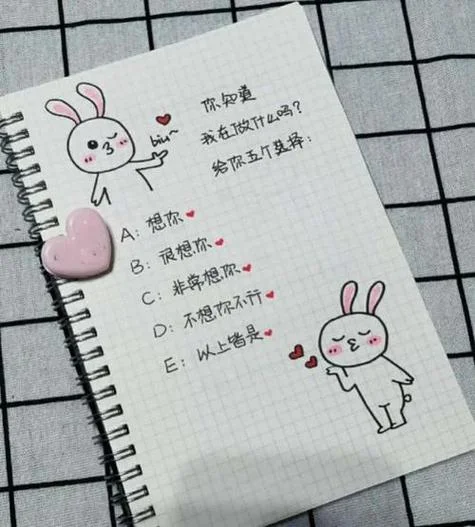 biu~
你知道
我在做什么吗?
给你五个选择:
A: 想你
B: 很想你
C: 非常想你
D: 不想你不行
E: 以上皆是